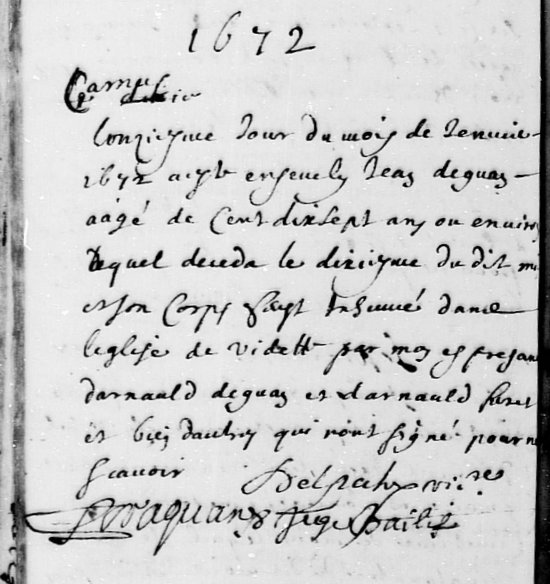 1672
Camus
Lonziesme Jour du mois de Jenvie
1672 a esté ensevely Jean deguan
aagé de Cent dix sept ans ou enviro
lequel deceda le diziesme du dit m
et son Corps fust Inhumé dans
leglise de vidett par moy es presan
darnauld deguan et darnauld
et biey daultres qui nont signé pour ne
scavoir Delpech vic.re